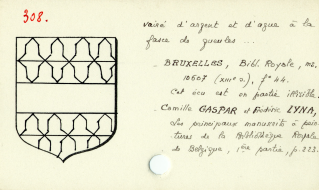 308.
vairé d'argent et d'azur à la
fasce de gueules ...
- BRUXELLES, Bibl. Royale, ms.
10607 (XIIIe s.), f° 44.
Cet écu est en partie
- Camille GASPAR et Frédéric LYNA,
Les principaux manuscrits à pein-
tures de la Bibliothèque Royale
de Belgique, 1ère partie, p. 223.